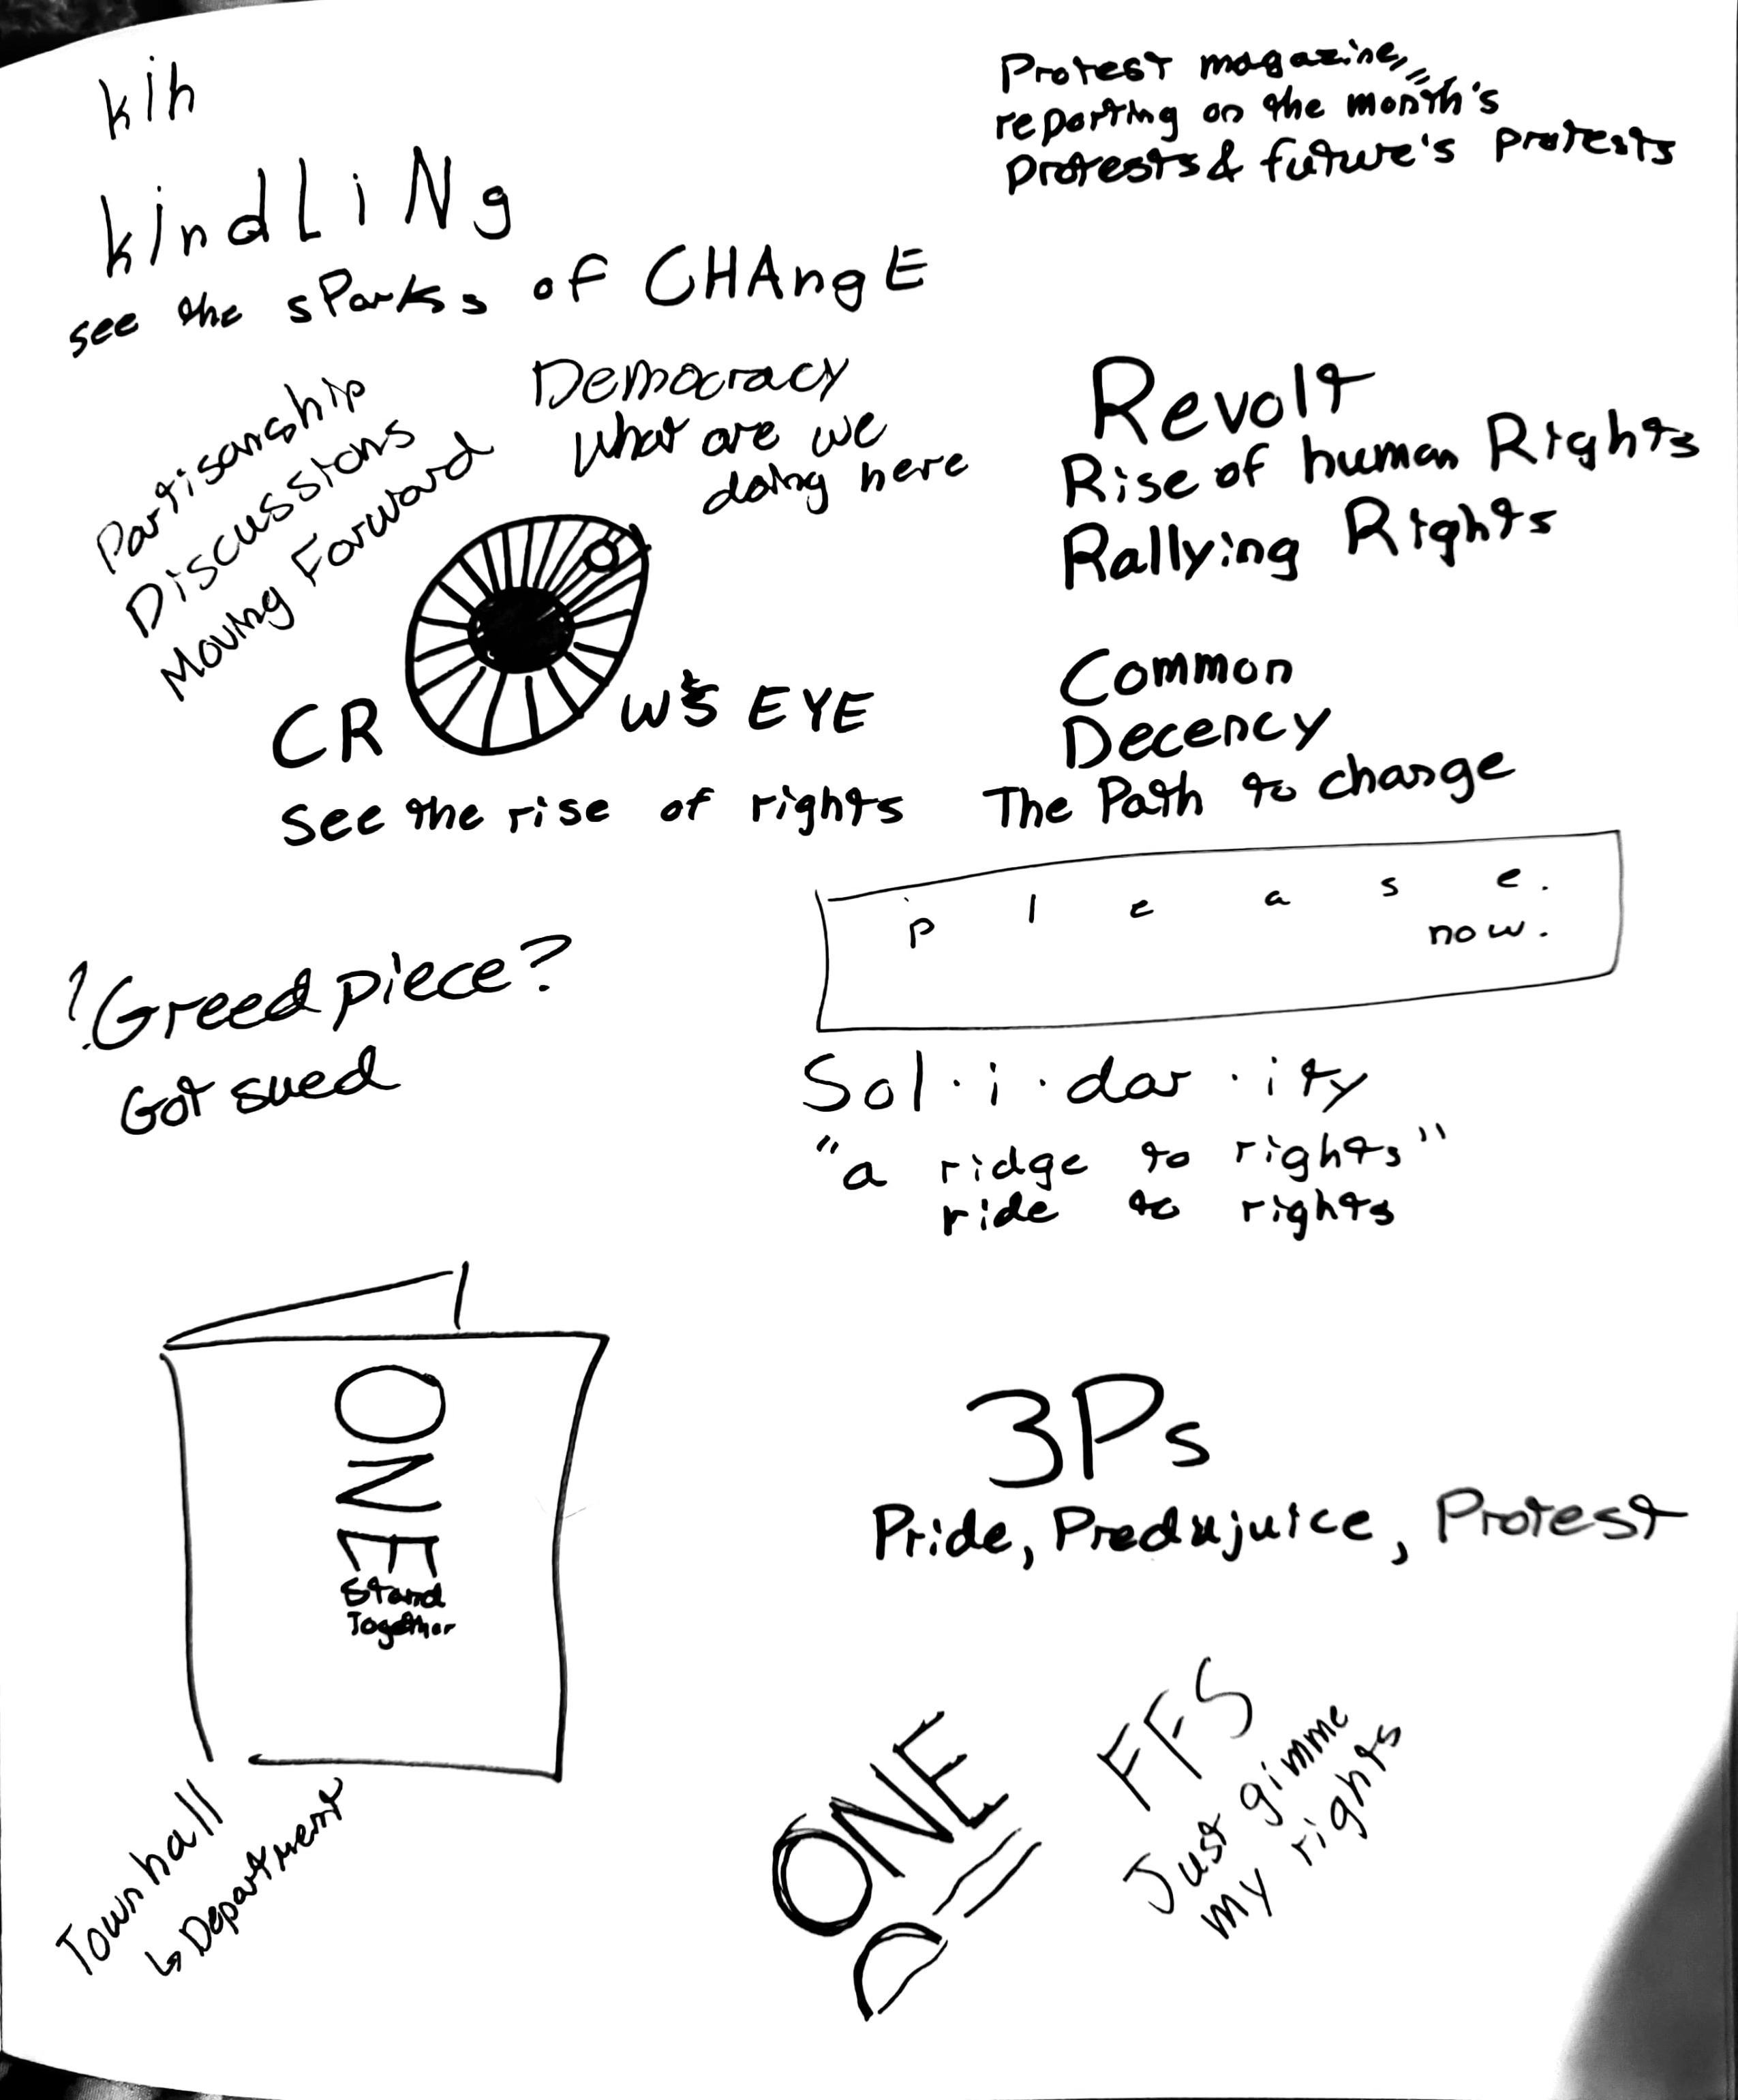 kih
kindLiNg
see the sParks of CHAngE
Protest magazine,
reporting on the month's
protests & future's protests
Partisanship
Discussions
Moving Forward
Democracy
what are we
doing here
Revolt
Rise of human Rights
Rallying Rights
CROW'S EYE
see the rise of rights
Common
Decency
The Path to change
p l e a s e.
now.
?Greed piece?
Got sued
Sol·i·dar·ity
"a ridge to rights"
ride to rights
ONE
Stand
Together
Townhall
↳Department
3Ps
Pride, Predujuice, Protest
ONE
FFS
Just gimme
my rights